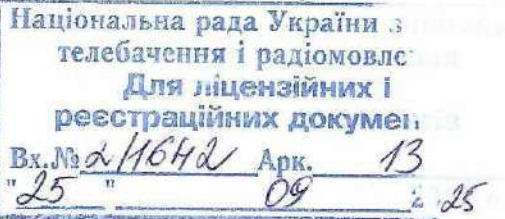 Національна рада України з
телебачення і радіомовле
Для ліцензійних і
реєстраційних докумен
Вх.№ 2/1642 Арк. 13
"25" 09 2 25